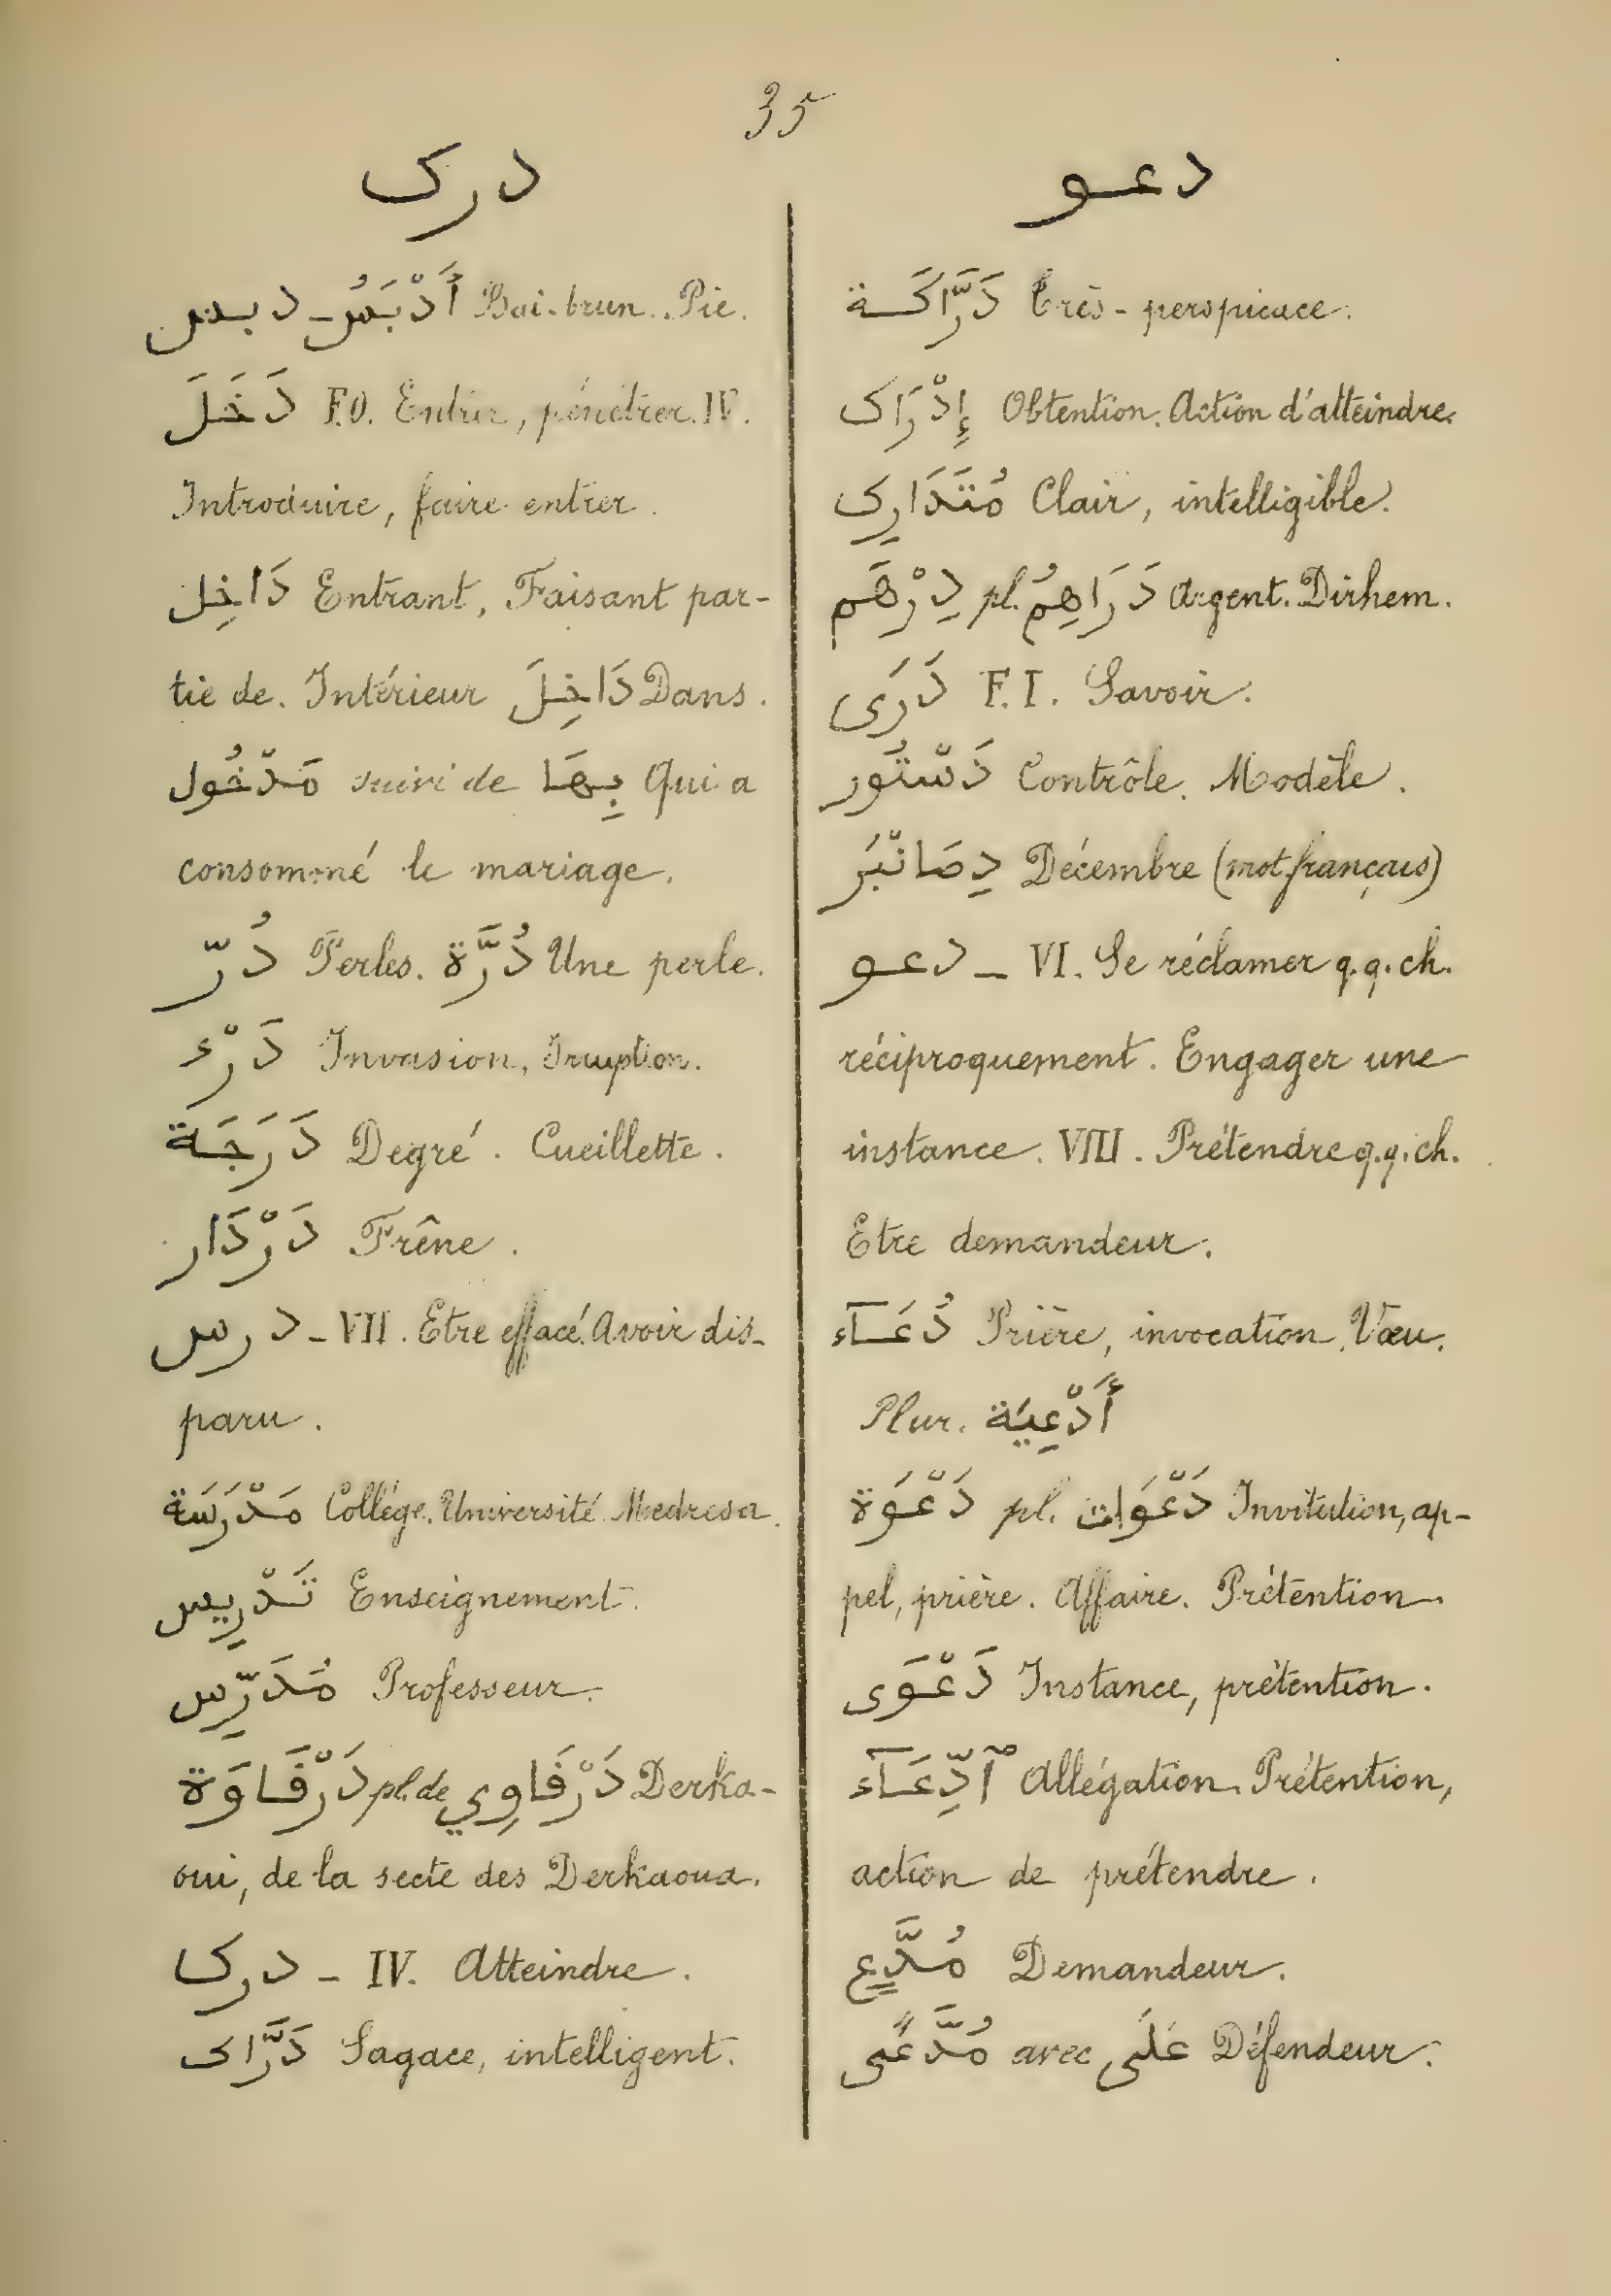 35
درك
دبس - أَدْبَسُ Bai-brun. Pie.
دَخَلَ F.O. Entrer, pénétrer. IV.
Introduire, faire entrer.
دَاخِل Entrant, Faisant par-
tie de. Intérieur دَاخِلَ Dans.
مَدْخُول suivi de بِهَا Qui a
consommé le mariage.
دُرّ Perles. دُرَّة Une perle.
دَرْء Invasion, Irruption.
دَرَجَة Degré. Cueillette.
دَرْدَار Frêne.
درس - VII. Etre effacé. Avoir dis-
paru.
مَدْرَسَة Collége. Université. Medresa.
تَدْرِيس Enseignement.
مُدَرِّس Professeur.
دَرْفَاوَة pl. de دَرْفَاوِي Derka-
oui, de la secte des Derkaoua.
درك - IV. Atteindre.
دَرَّاك Sagace, intelligent.
دعو
دَرَّاكَة Très-perspicace.
إِدْرَاك Obtention. Action d'atteindre.
مُتَدَارِك Clair, intelligible.
دِرْهَم pl. دَرَاهِمُ Argent. Dirhem.
دَرَى F.I. Savoir.
دَسْتُور Contrôle. Modèle.
دِصَانْبَر Décembre (mot français)
دعو - VI. Se réclamer q.q.ch.
réciproquement. Engager une
instance. VIII. Prétendre q.q.ch.
Etre demandeur.
دُعَآء Prière, invocation. Vœu.
Plur. أَدْعِيَة
دَعْوَة pl. دَعْوَات Invitation, ap-
pel, prière. Affaire. Prétention.
دَعْوَى Instance, prétention.
ٱدِّعَآء Allégation. Prétention,
action de prétendre.
مُدَّعٍ Demandeur.
مُدَّعًى avec عَلَى Défendeur.